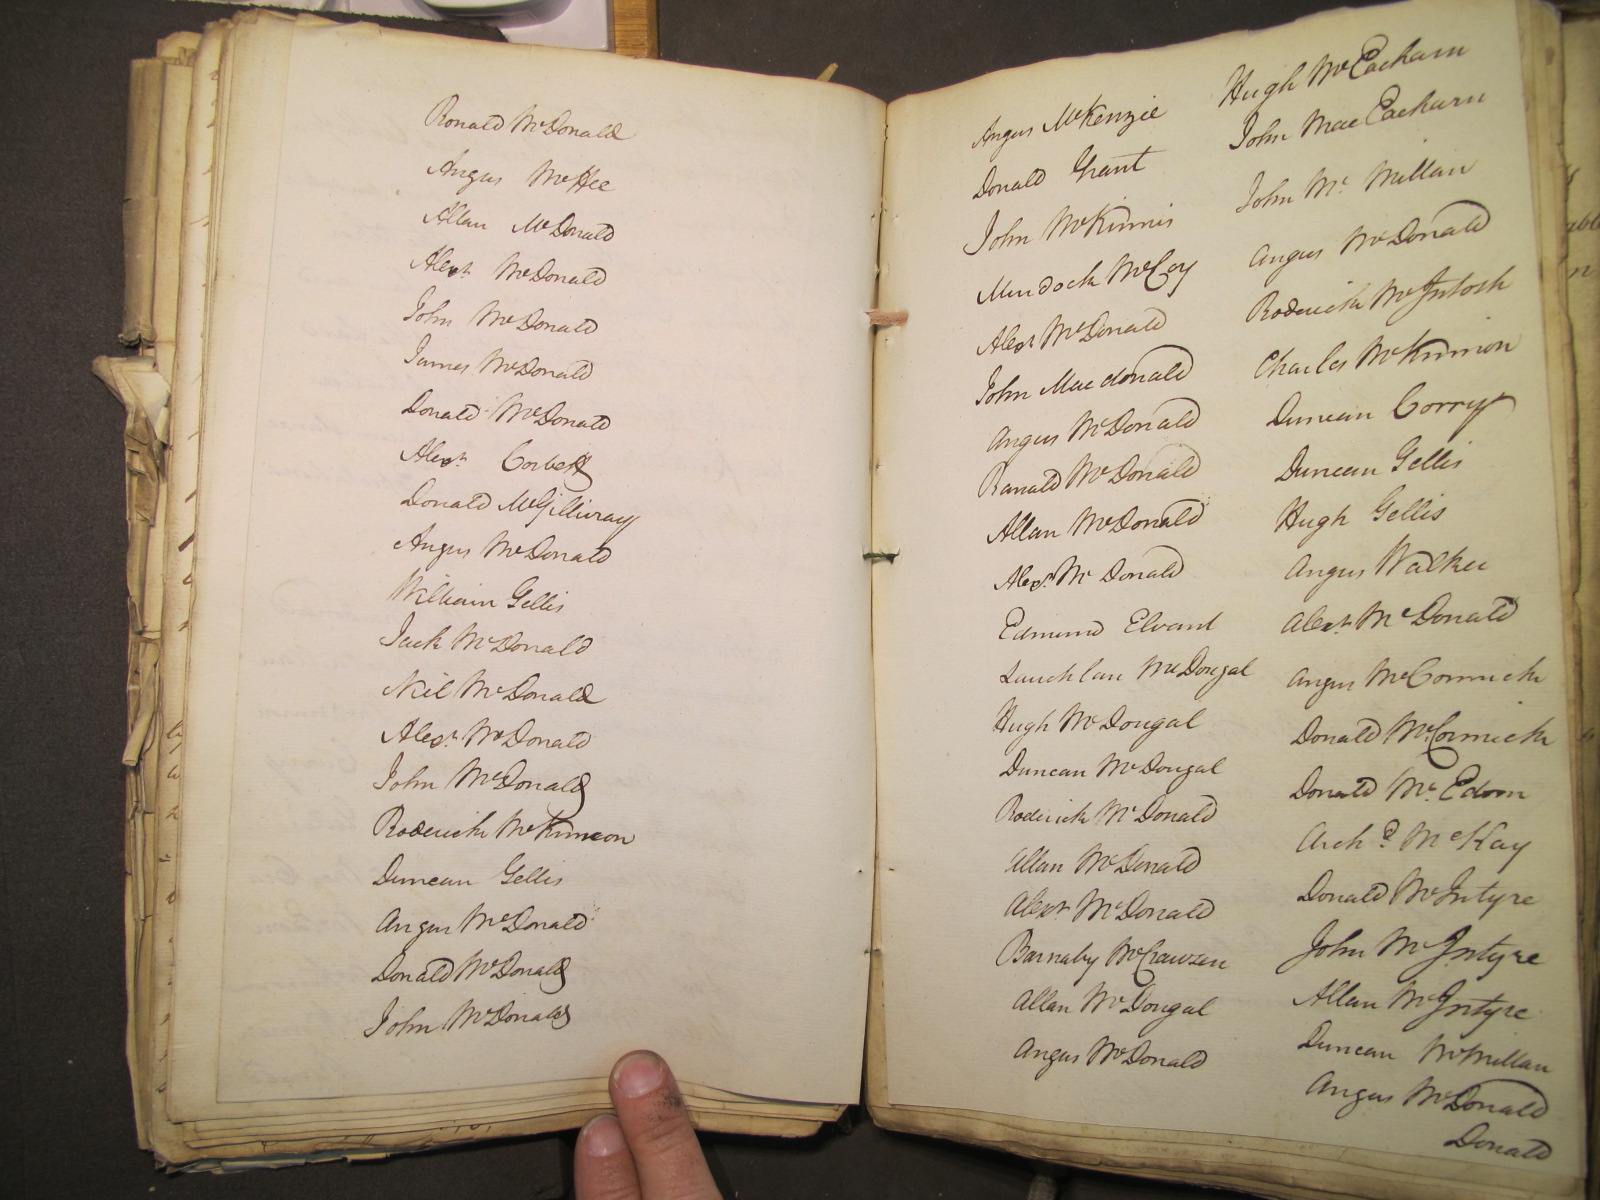 Ronald McDonald
Angus McHee
Allan McDonald
Alexr McDonald
John McDonald
James McDonald
Donald McDonald
Alexr Corbett
Donald McGillivray
Angus McDonald
William Gellis
Jack McDonald
Neil McDonald
Alexr McDonald
John McDonald
Roderick McKinnon
Duncan Gellis
Angus McDonald
Donald McDonald
John McDonald
Angus McKenzie
Donald Grant
John McKinnis
Murdock McCoy
Alexr McDonald
John Macdonald
Angus McDonald
Ranald McDonald
Allan McDonald
Alexr McDonald
Edmund Elvant
Lauchlan McDougal
Hugh McDougal
Duncan McDougal
Roderick McDonald
Allan McDonald
Alexr McDonald
Barnaby
Allan McDougal
Angus McDonald
Hugh McEacharn
John MacEacharn
John Mc Millan
Angus McDonald
Roderick McIntosh
Charles McKinnon
Duncan Corry
Duncan Gellis
Hugh Gellis
Angus Walker
Alexr McDonald
Angus McCormick
Donald McCormick
Donald Mc
Archd McKay
Donald McIntyre
John McIntyre
Allan McIntyre
Duncan McMillan
Angus McDonald
Donald